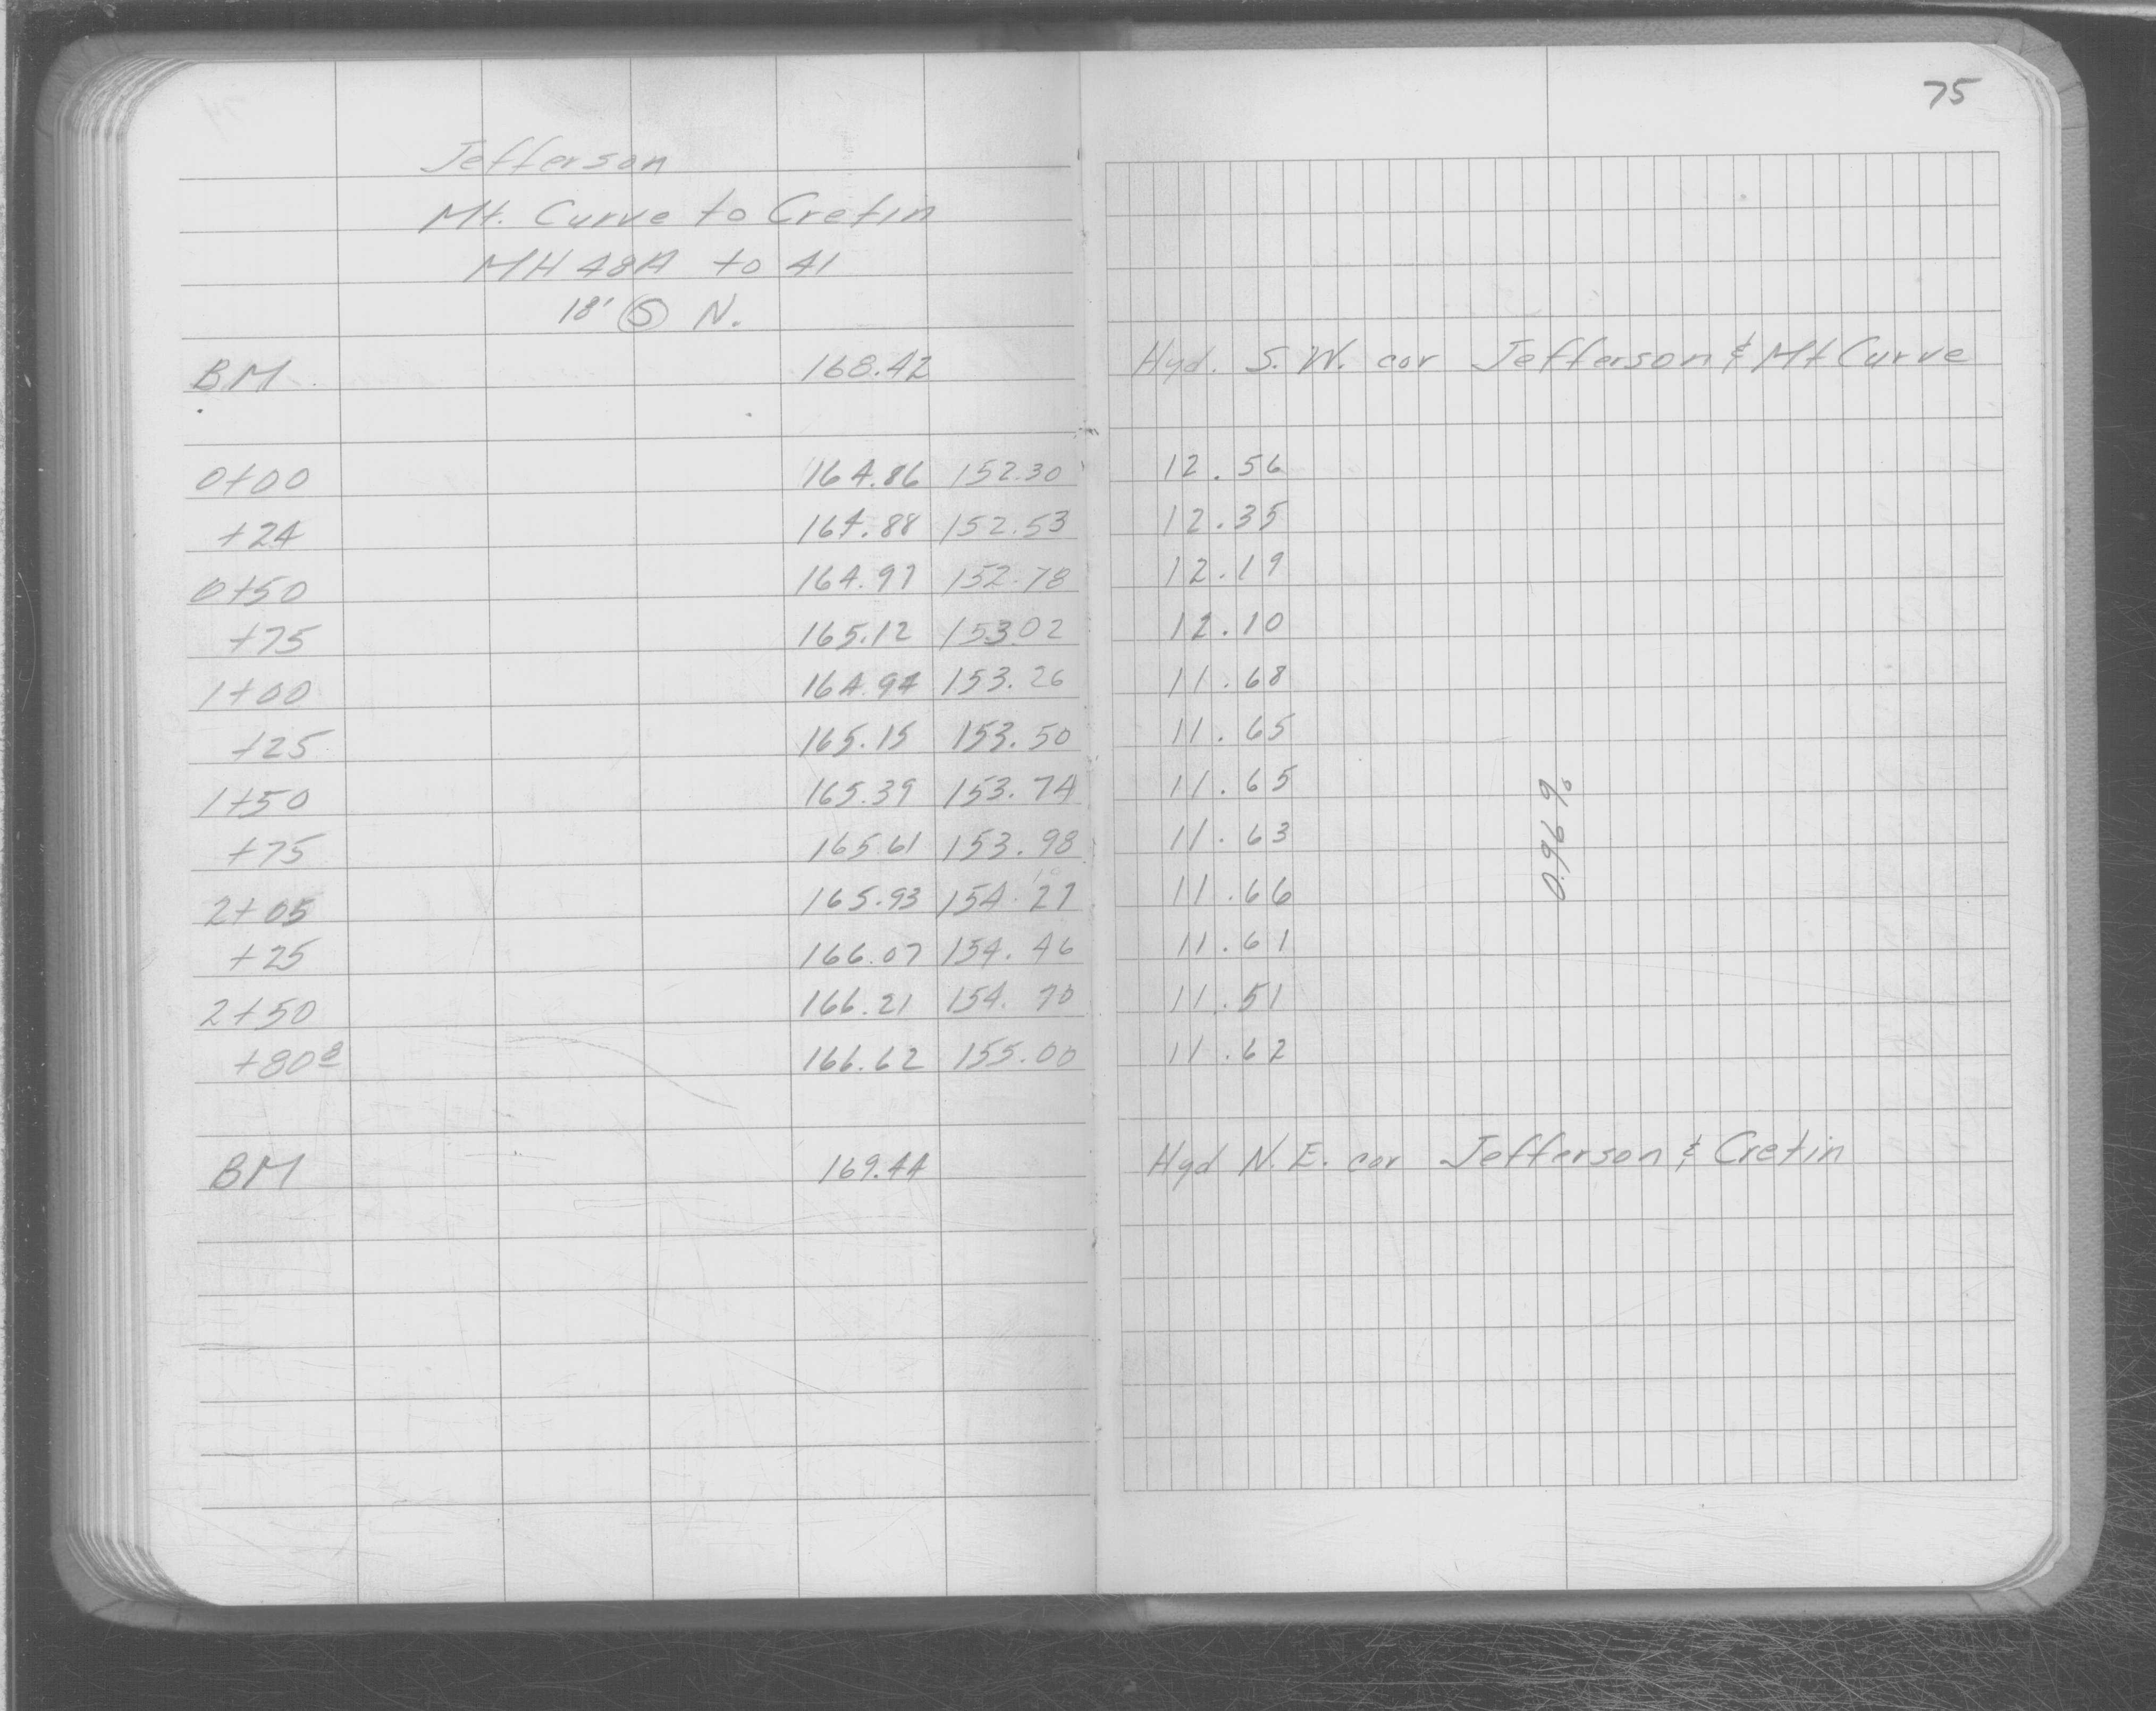 75
Jefferson
Mt. Curve to Cretin
MH 48A to 41
18' Ⓢ N.
BM 168.42 Hyd. S. W. cor Jefferson & Mt Curve
0+00 164.86 152.30 12.56
+24 164.88 152.53 12.35
0+50 164.97 152.78 12.19
+75 165.12 153.02 12.10
1+00 164.94 153.26 11.68
+25 165.15 153.50 11.65
1+50 165.39 153.74 11.65
+75 165.61 153.98 11.63
0.96%
2+05 165.93 154.27 11.66
+25 166.07 154.46 11.61
2+50 166.21 154.70 11.51
+80⁸ 166.62 155.00 11.62
BM 169.44 Hyd N. E. cor Jefferson & Cretin